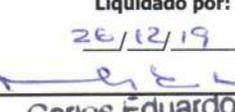 Liquidado por:
26/12/19
Carlos Eduardo